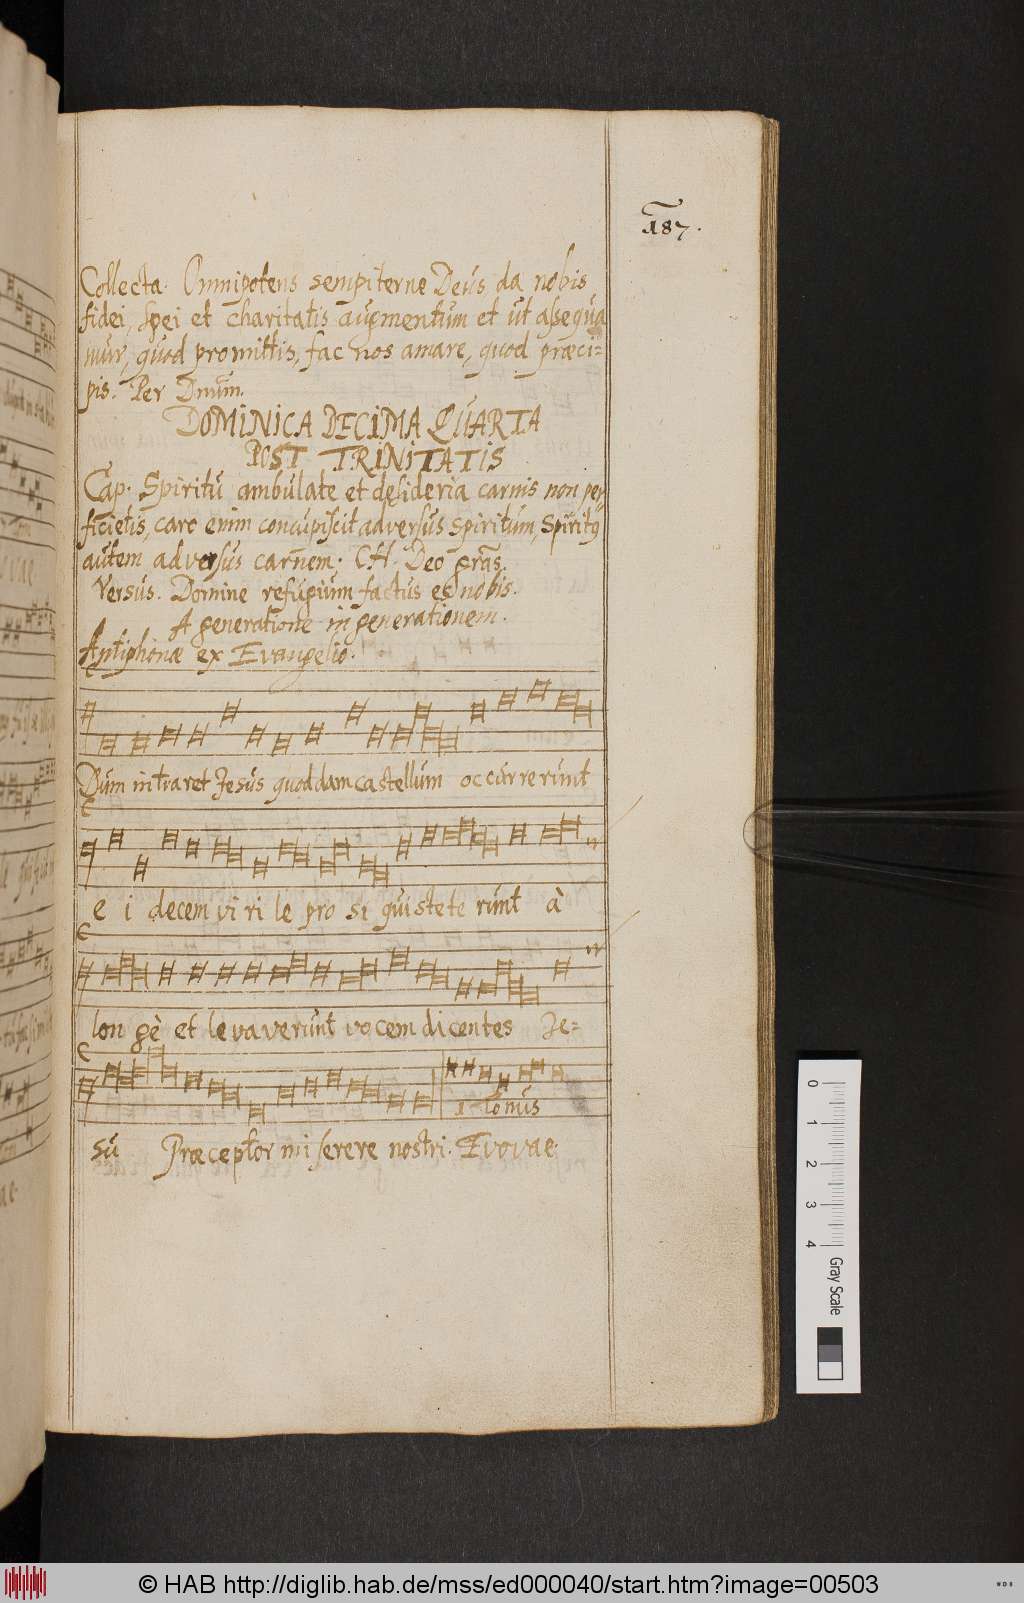 187.
Collecta. Omnipotens sempiterne Deus, da nobis
fidei, spei et charitatis augmentum et ut assequa
mur, quod promittis, fac nos amare, quod præci=
pis. Per Dnum.
DOMINICA DECIMA QUARTA
POST TRINITATIS
Cap. Spiritu ambulate et desideria carnis non per
ficietis, caro enim concupiscit adversus spiritum, Spiritus
autem adversus carnem. CH. Deo gras.
Versus. Domine refugium factus es nobis.
A generatione in generationem.
Antiphonæ ex Evangelio.
Dum intraret Jesus quoddam castellum occurrerunt
e i decem vi ri le pro si qui stete runt à
lon gè et levaverunt vocem dicentes Je-
1 tonus
su Præceptor miserere nostri. Evovae.
0
1
2
3
4
Gray Scale
© HAB http://diglib.hab.de/mss/ed000040/start.htm?image=00503